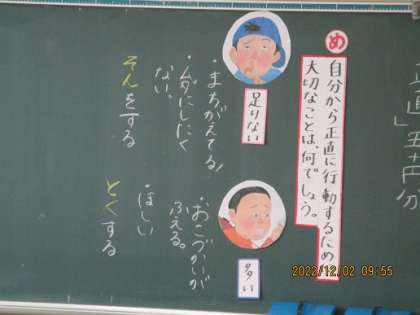 め
自分から正直に行動するため
大切なことは、何でしょう。
足りない
・まちがえてる!
・ムダにしたく
ない。
そんをする
多い
・おこづかいが
ふえる。
・ほしい
とくする
2023/12/02 09:55